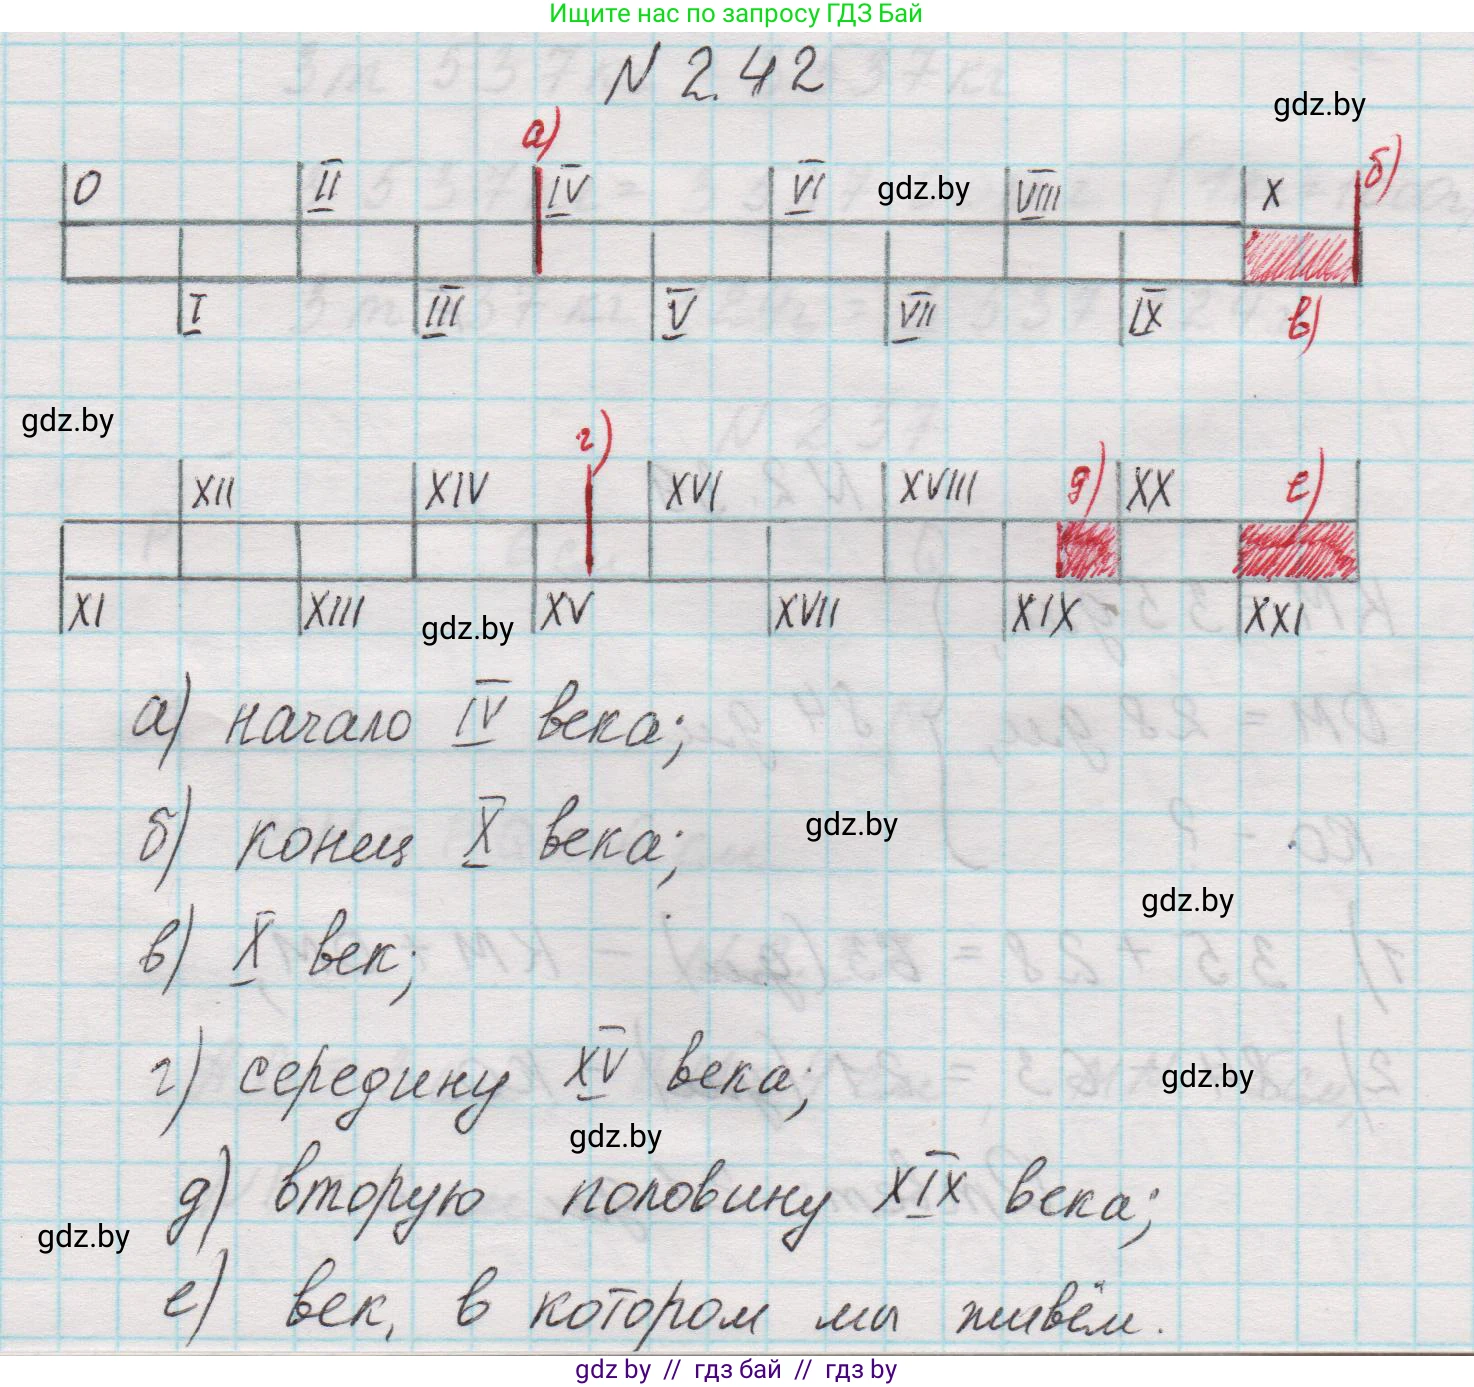 Ищите нас по запросу ГДЗ Бай
N 2.42
gdz.by
а)
б)
0 II IV VI gdz.by VIII X
I III V VII IX в)
gdz.by
г)
XII XIV XVI XVIII д) XX е)
XI XIII gdz.by XV XVII XIX XXI
а) начало IV века;
б) конец X века;
gdz.by
gdz.by
в) X век;
г) середину XV века;
gdz.by
gdz.by
д) вторую половину XIX века;
gdz.by
е) век, в котором мы живём.
gdz.by // гдз бай // гдз by